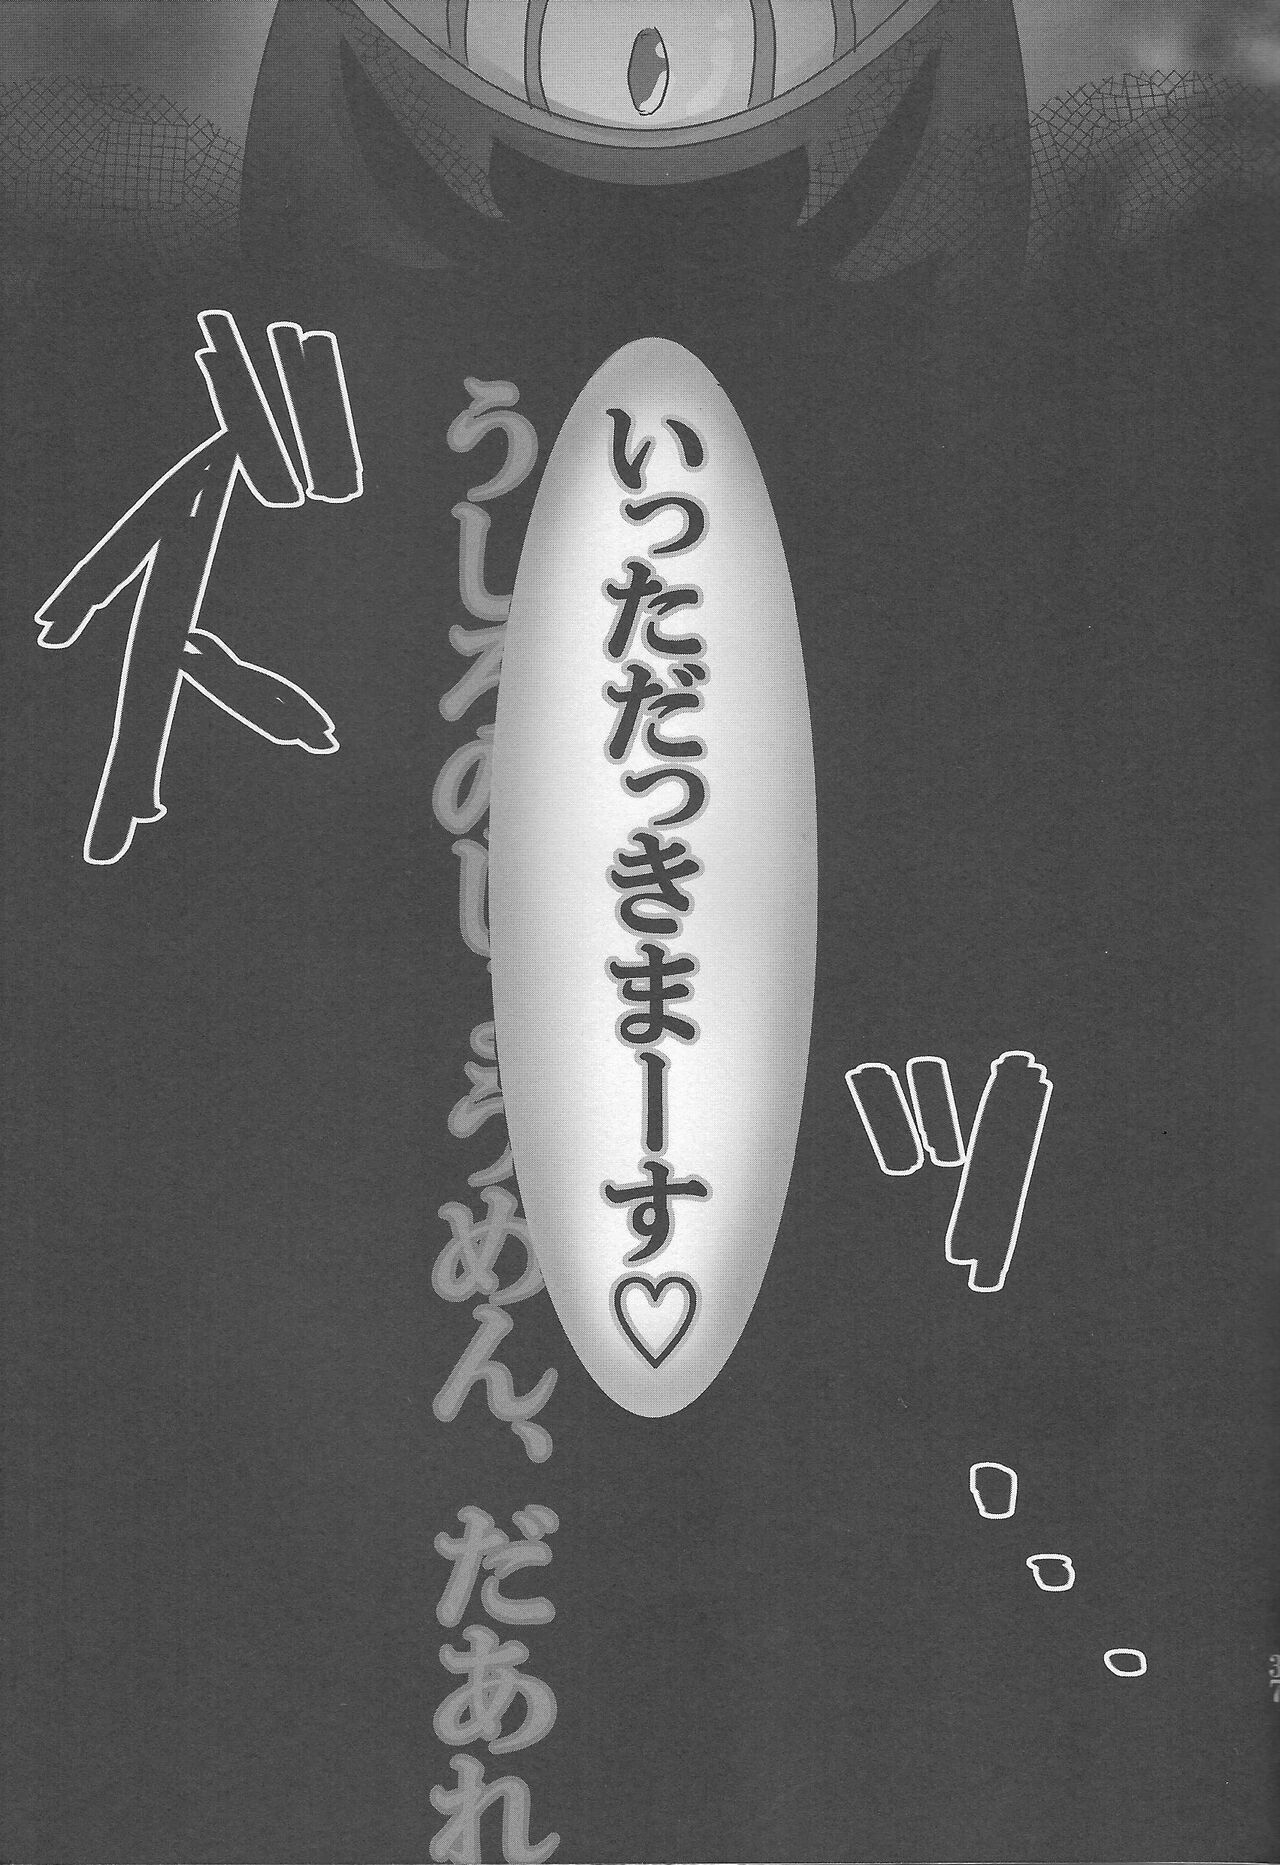 いっただっきまーす♡
うしろのしょうめん、だあれ
ズッ...
37